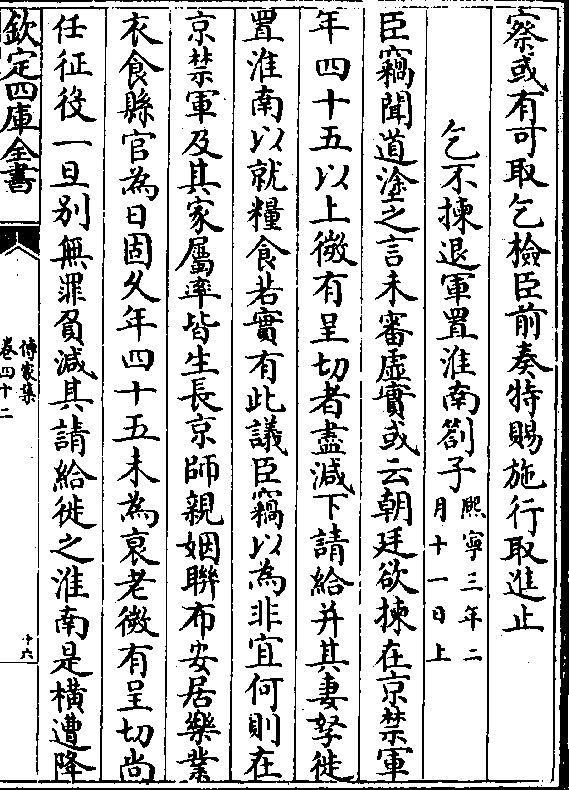 察或有可取乞檢臣前奏特賜施行取進止
乞不揀退軍置淮南劄子熙寧三年二
月十一日上
臣竊聞道塗之言未審虛實或云朝廷欲揀在京禁軍
年四十五以上微有呈切者盡減下請給并其妻孥徙
置淮南以就糧食若實有此議臣竊以為非宜何則在
京禁軍及其家屬率皆生長京師親姻聯布安居樂業
衣食縣官為日固久年四十五未為衰老微有呈切尚
任征役一旦别無罪負減其請給徙之淮南是横遭降
欽定四庫全書
傳家集
卷四十二
十六